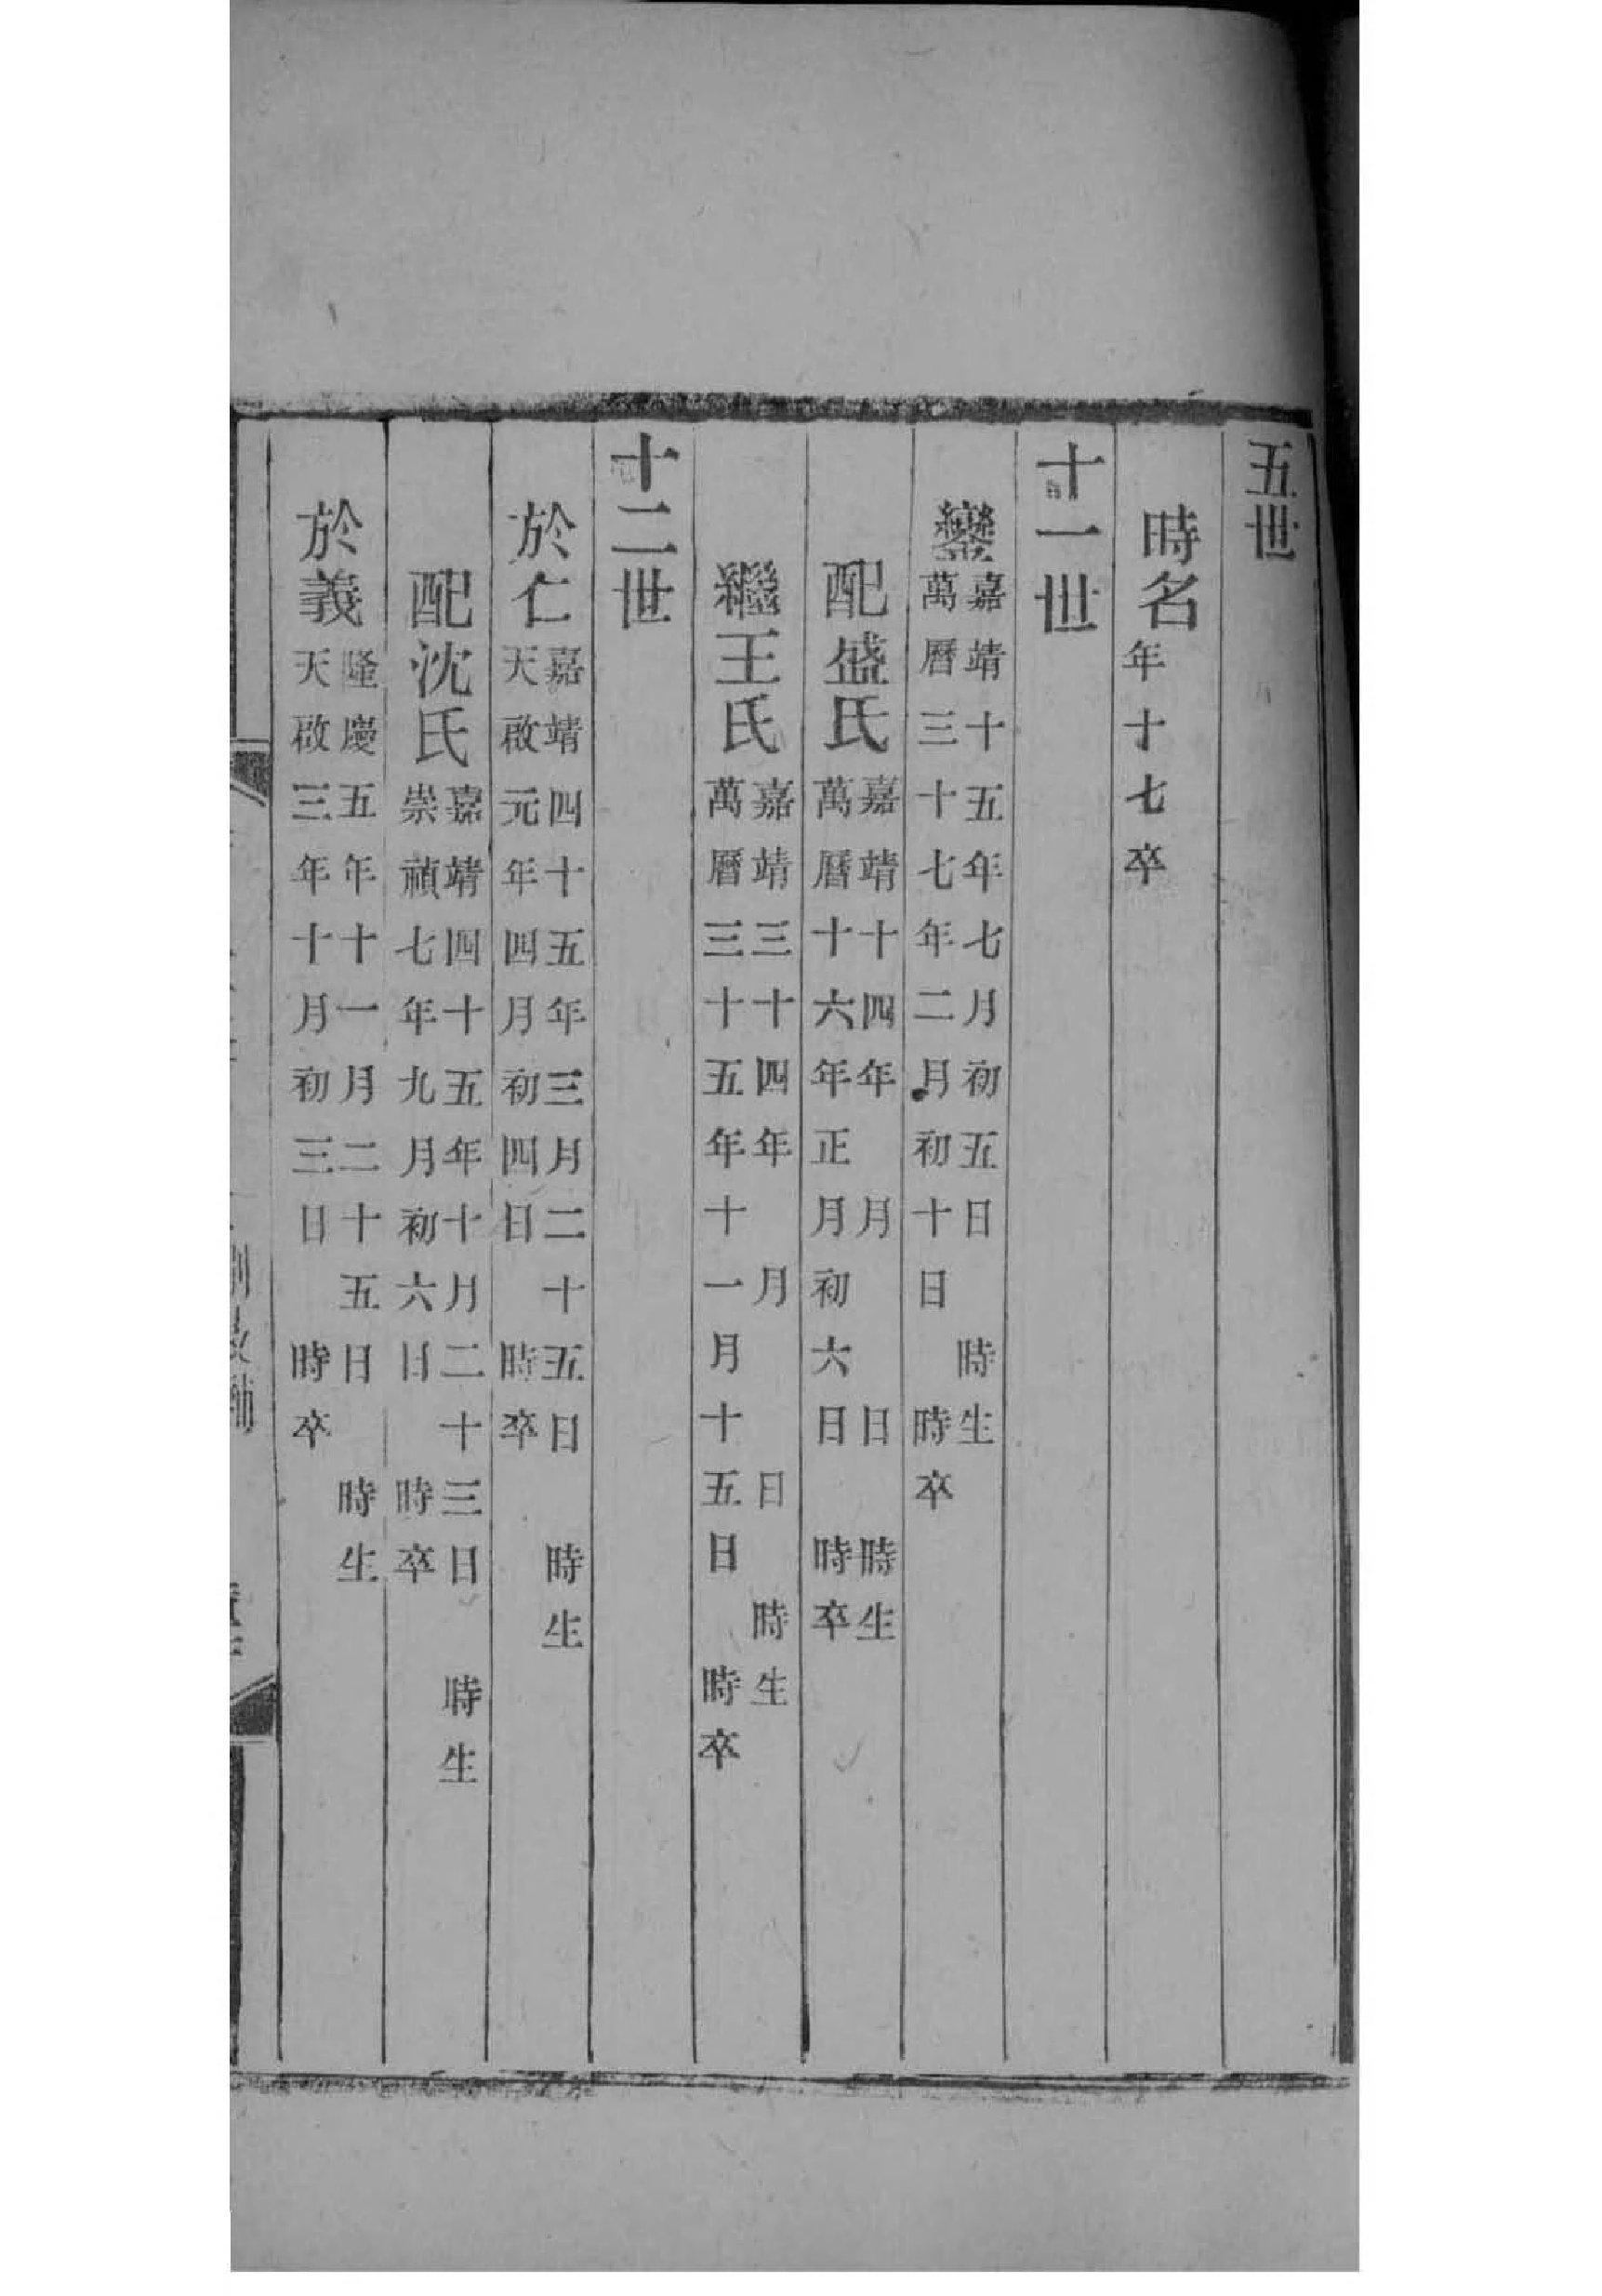 五世
時名年十七卒
十一世
鑾嘉靖十五年七月初五日 時生
萬曆三十七年二月初十日 時卒
配盛氏嘉靖十四年 月 日 時生
萬曆十六年正月初六日 時卒
繼王氏嘉靖三十四年 月 日 時生
萬曆三十五年十一月十五日 時卒
十二世
於仁嘉靖四十五年三月二十五日 時生
天啟元年四月初四日 時卒
配沈氏嘉靖四十五年十月二十三日 時生
崇禎七年九月初六日 時卒
於義隆慶五年十一月二十五日 時生
天啟三年十月初三日 時卒